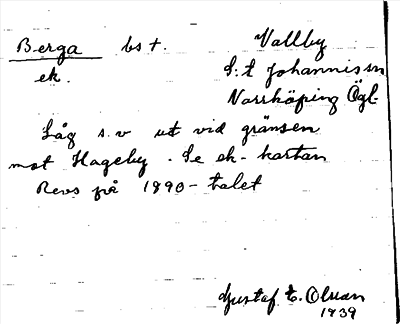 Berga bs t. Vallby
ek. S:t Johannis sn
Norrköping Ögl.
Låg s.v ut vid gränsen
mot Hageby. Se ek-kartan
Revs på 1890-talet
Gustaf E. Olsson
1939